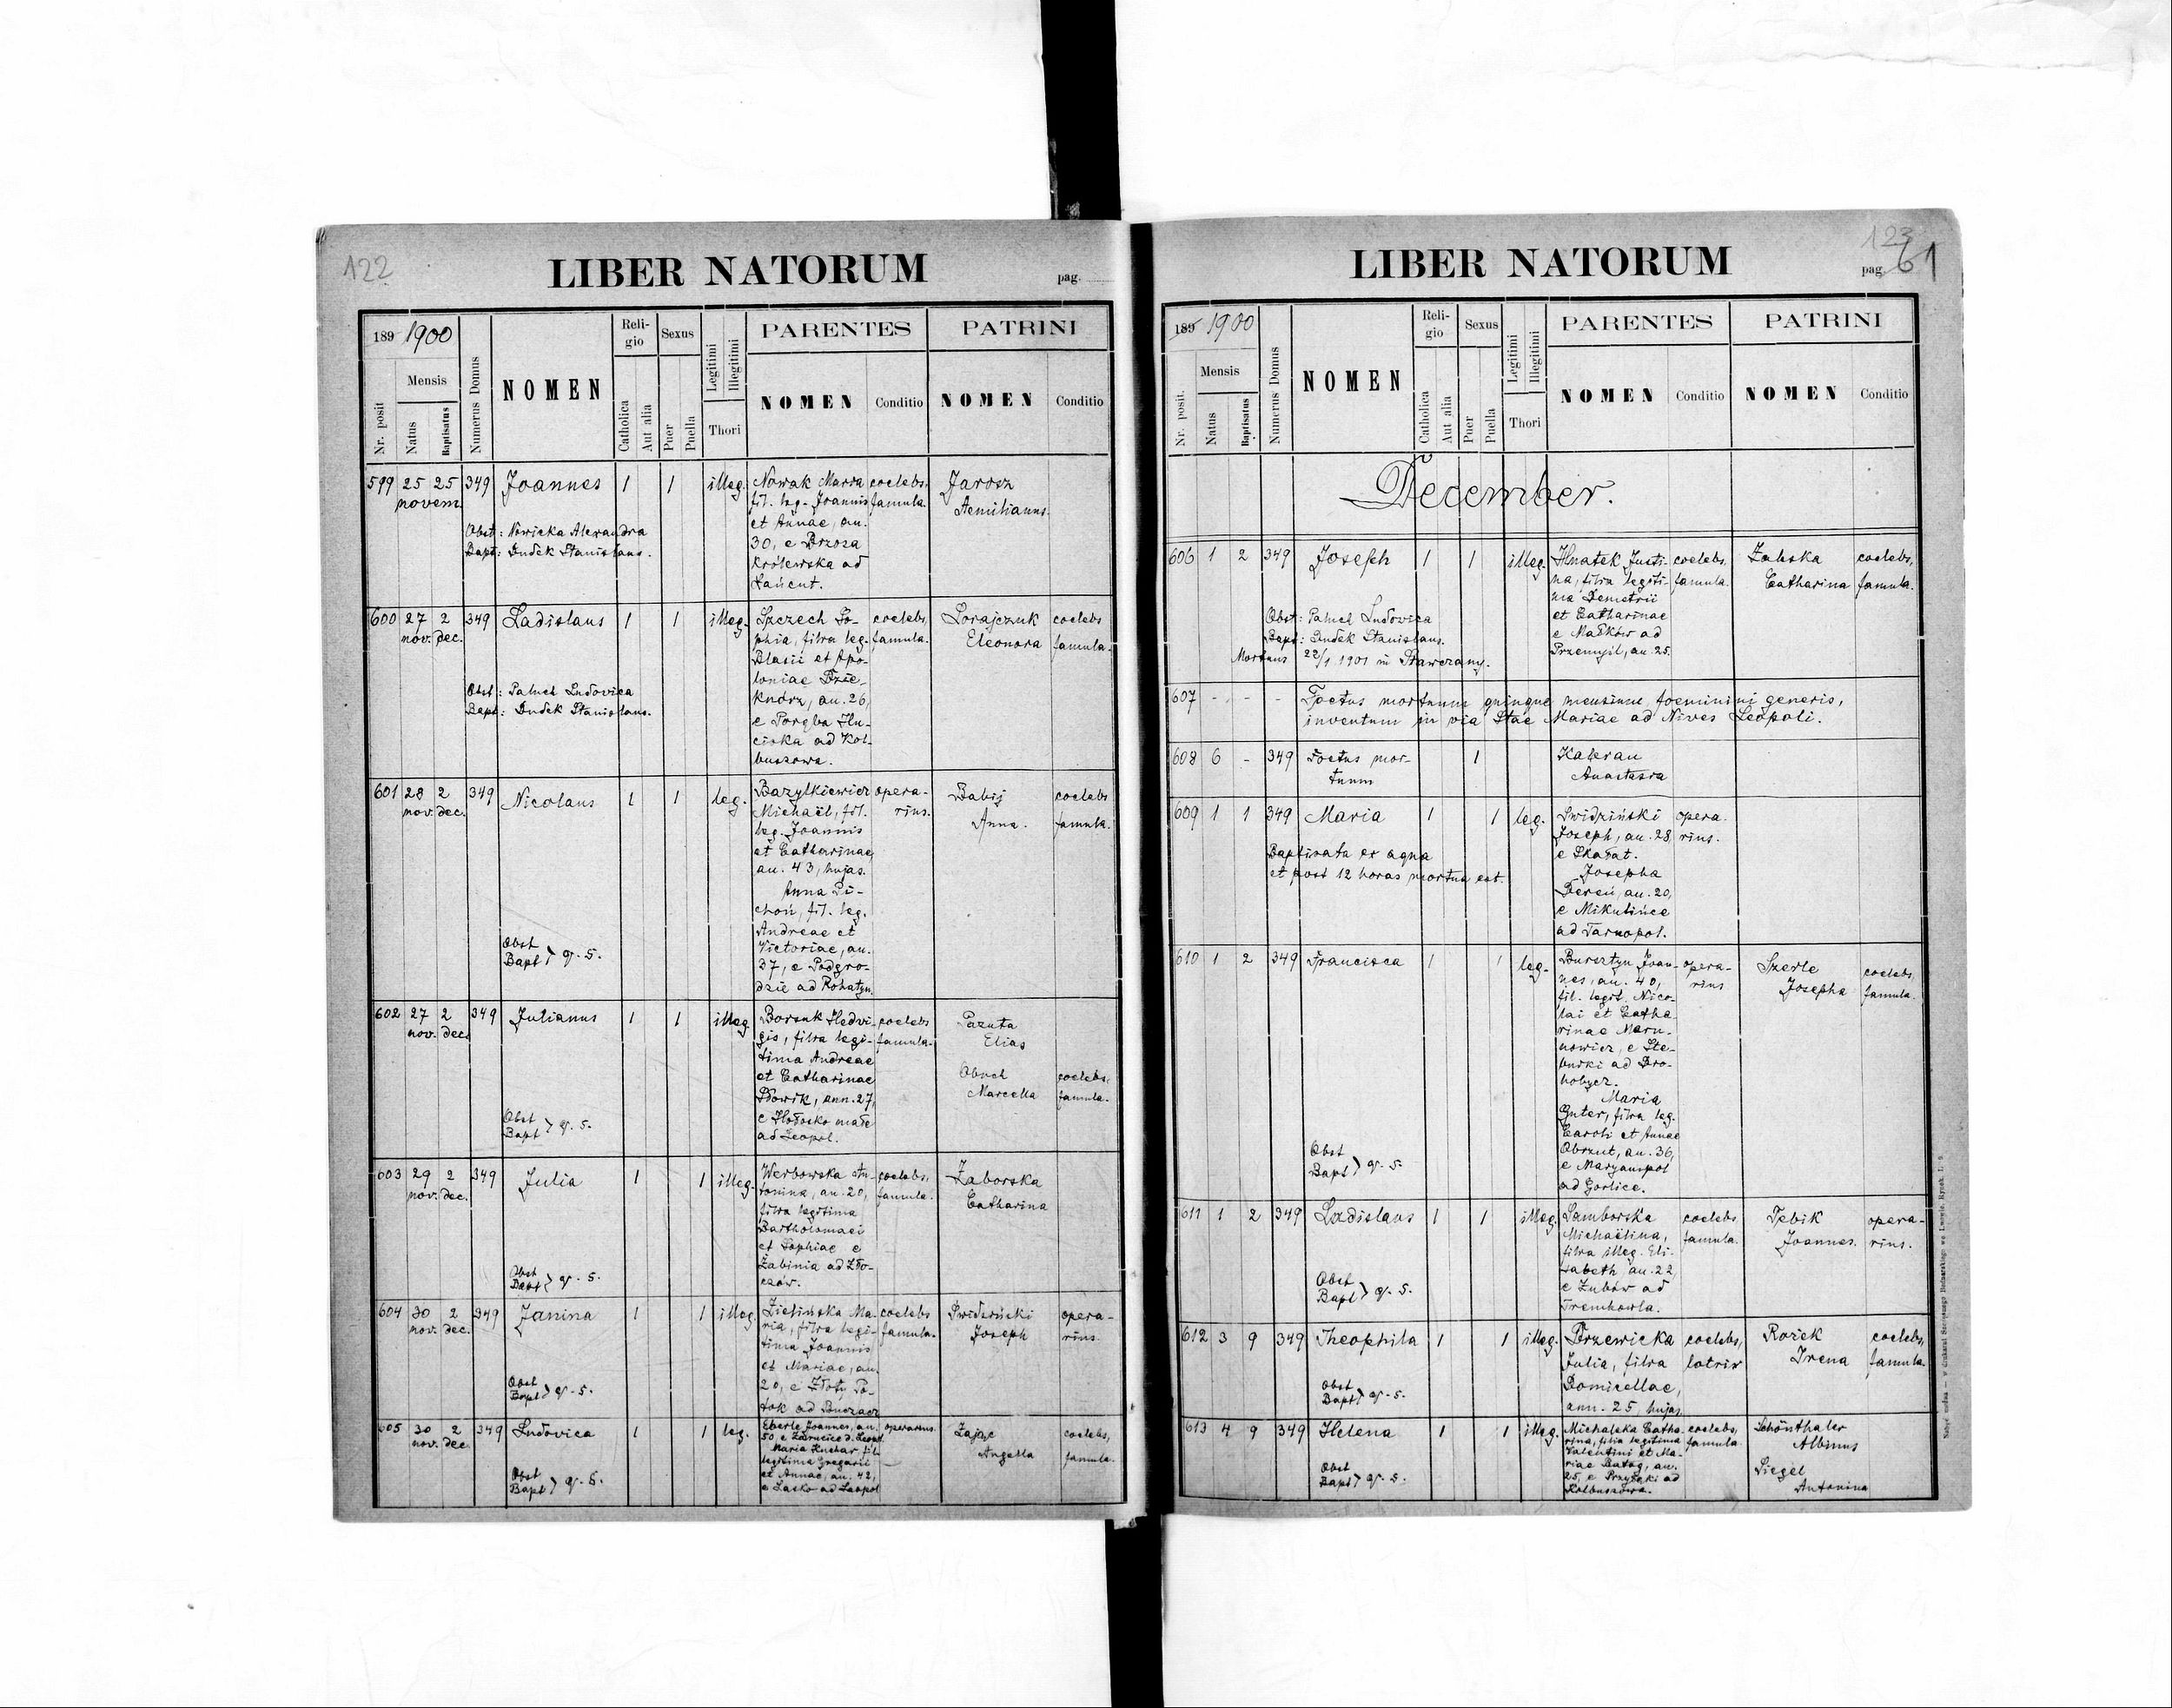 122
LIBER NATORUM
pag.
189 1900
Mensis
Nr. posit
Natus
Baptisatus
Numerus Domus
NOMEN
Religio
Catholica
Aut alia
Sexus
Puer
Puella
Legitimi
Illegitimi
Thori
PARENTES
NOMEN
Conditio
PATRINI
NOMEN
Conditio
599 25 25 349 Joannes 1 1 illeg. Nowak Maria coelebs, Jarosz
novem. fil. leg. Joannis famula. Aemilianus.
et Annae, an.
Obst: Nowicka Alexandra
30, e Brzoza
Bapt: Dudek Stanislaus.
Królewska ad
Łańcut.
600 27 2 349 Ladislaus 1 1 illeg. Szczech So- coelebs, Lorajczuk coelebs
nov. dec. phia, filia leg. famula. Eleonora famula.
Blasii et Apo-
loniae Dzie-
Obst: Paluch Ludovica
kndrz, an. 26,
Bapt: Dudek Stanislaus.
e Poręba Hu-
ciska ad Kol-
buszowa.
601 28 2 349 Nicolaus 1 1 leg. Bazylkiewicz opera- Babij coelebs
nov. dec. Michaël, fil. rius. Anna. famula.
leg. Joannis
et Catharinae,
an. 43, hujas.
Anna Pi-
choń, fil. leg.
Andreae et
Obst
Bapt } q. s.
Victoriae, an.
37, e Podgro-
dzie ad Rohatyn.
602 27 2 349 Julianus 1 1 illeg Borsuk Hedvi- coelebs Pazuta
nov. dec. gis, filia legi- famula. Elias
tima Andreae
et Catharinae Obuch coelebs,
Słowik, ann. 27, Marcella famula.
Obst
Bapt } q. s.
e Hołosko małe
ad Leopol.
603 29 2 349 Julia 1 1 illeg. Werbowska An- coelebs, Zaborska
nov. dec. tonina, an. 20, famula. Catharina
filia legitima
Bartholomaei
et Sophiae e
Obst
Bapt } q. s.
Żabinia ad Zło-
czów.
604 30 2 349 Janina 1 1 illeg. Zielińska Ma- coelebs Świdziński opera-
nov. dec. ria, filia legi- famula. Joseph rius.
tima Joannis
et Mariae, an.
Obst
Bapt } q. s.
20, e Złoty Po-
tok ad Buczacz
605 30 2 349 Ludovica 1 1 leg. Eberle Joannes, an. operarius. Zając coelebs,
nov. dec. 50, Leopol Angella famula.
Maria Kuchar fil.
legitima Gregorii
Obst
Bapt } q. s.
et Annae, an. 42,
e Lasko ad Leopol
123
LIBER NATORUM
pag. 61
189 1900
Mensis
Nr. posit.
Natus
Baptisatus
Numerus Domus
NOMEN
Religio
Catholica
Aut alia
Sexus
Puer
Puella
Legitimi
Illegitimi
Thori
PARENTES
NOMEN
Conditio
PATRINI
NOMEN
Conditio
December.
606 1 2 349 Joseph 1 1 illeg. Hnatek Justi- coelebs, Zaleska coelebs,
na, filia legiti- famula. Catharina famula.
ma Demetrii
Obst: Paluch Ludovica
et Catharinae
Bapt: Dudek Stanislaus.
e Małków ad
Mortuus 22/1 1901 in Stawczany.
Przemyśl, an. 25.
607 - - - Foetus mortuus quinque mensium foeminini generis,
inventum in via Stae Mariae ad Nives Leopoli.
608 6 - 349 Foetus mor- 1 Kateran
tuum Anastasia
609 1 1 349 Maria 1 1 leg. Swidziński opera-
Joseph, an. 28, rius.
Baptisata ex aqua
e Skałat.
et post 12 horas mortua est.
Josepha
Dereń, an. 20,
e Mikulińce
ad Tarnopol.
610 1 2 349 Francisca 1 1 leg. Bursztyn Joan- opera- Szerle coelebs,
nes, an. 40, rius Josepha famula.
fil. legit. Nico-
lai et Catha-
rinae Maru-
nowicz, e Ste-
bniki ad Dro-
hobycz.
Maria
Guter, filia leg.
Caroli et Annae
Obst
Bapt } q. s.
Obrzut, an. 36,
e Maryampol
ad Gorlice.
611 1 2 349 Ladislaus 1 1 illeg. Samborska coelebs Tebik opera-
Michaëlina, famula. Joannes. rius.
filia illeg. Eli-
sabeth an. 22,
Obst
Bapt } q. s.
e Zubów ad
Trembowla.
612 3 9 349 Theophila 1 1 illeg. Brzewicka coelebs, Rożek coelebs,
Julia, filia lotrix Irena famula.
Obst
Bapt } q. s.
Domicellae,
ann. 25, hujas
613 4 9 349 Helena 1 1 illeg. Michalska Catha- coelebs, Schönthaler
rina, filia legitima famula. Albinus
Valentini et Ma-
riae Butag, an. Siegel
Obst
Bapt } q. s.
25, e Przyłęki ad Antonina
Kolbuszowa.